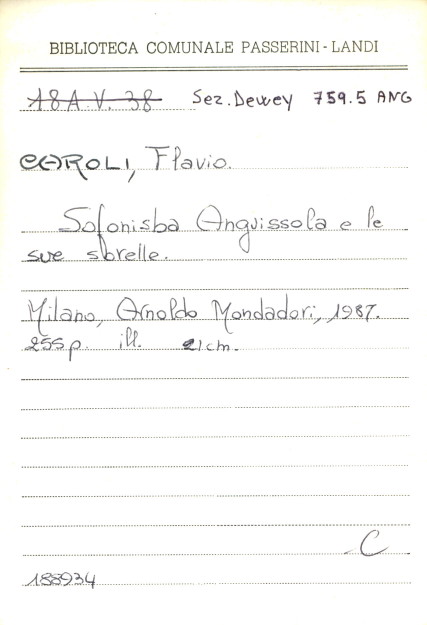 BIBLIOTECA COMUNALE PASSERINI-LANDI
18A.V. 38 Sez. Dewey 759.5 ANG
CAROLI, Flavio.
Sofonisba Anguissola e le
sue sorelle.
Milano, Arnoldo Mondadori, 1987.
255 p. ill. 21cm.
C
188934